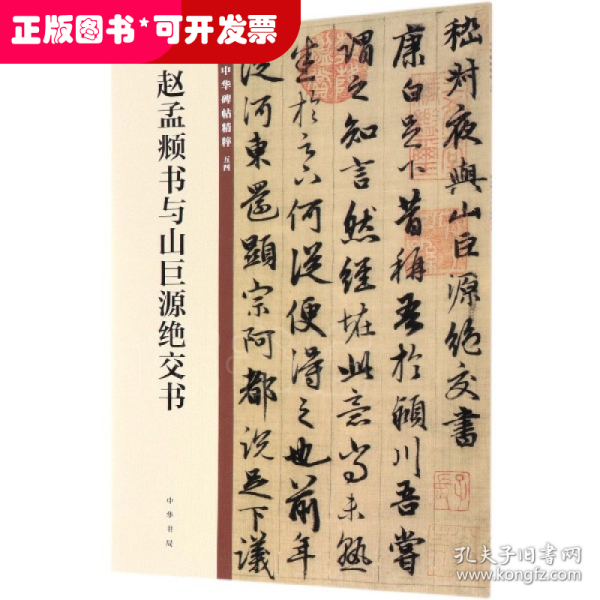 正版图书
正规发票
中华碑帖精粹 五四
赵孟頫书与山巨源绝交书
中华书局
嵇叔夜與山巨源絶交書
康白足下昔稱吾於頴川吾嘗
謂之知言然經怪此意尚未熟
悉於
何從便得之也前年
從河東還顯宗阿都説足下議
孔夫子旧书网
www.kongfz.com